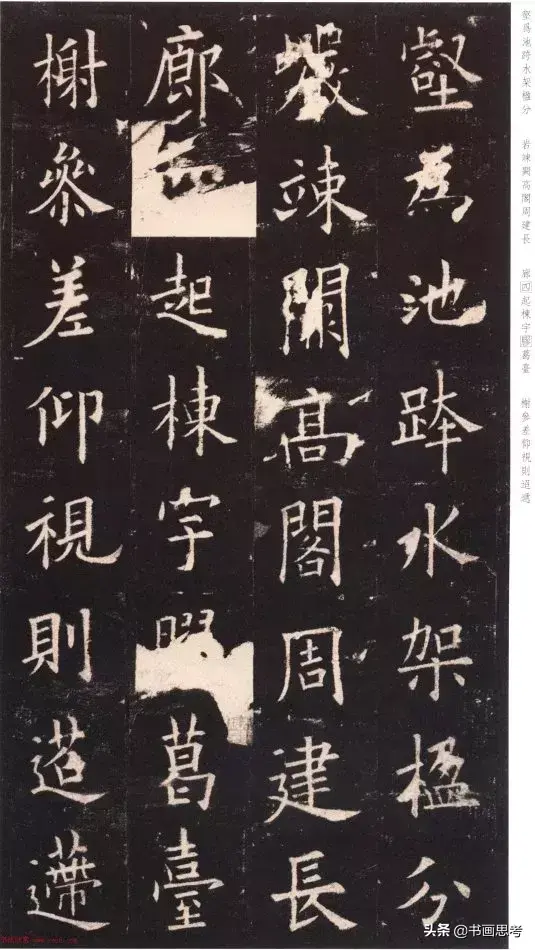 壑為池跨水架楹分
巖竦闕高閣周建長
廊起棟宇葛臺
榭參差仰視則迢遰
壑爲池跨水架楹分
岩竦闕高閣周建長
廊四起棟宇膠葛臺
榭參差仰視則迢遞
头条 @书画思考